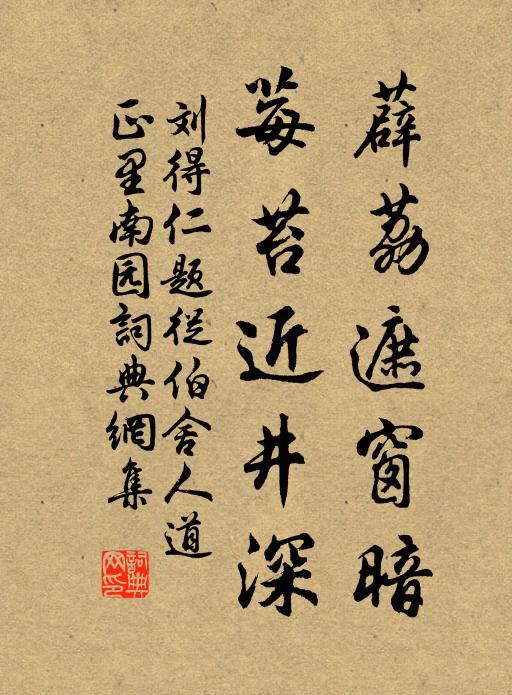 薜荔遮窗暗
莓苔近井深
刘得仁题從伯舍人道
正里南园詞典網集
詞典网印